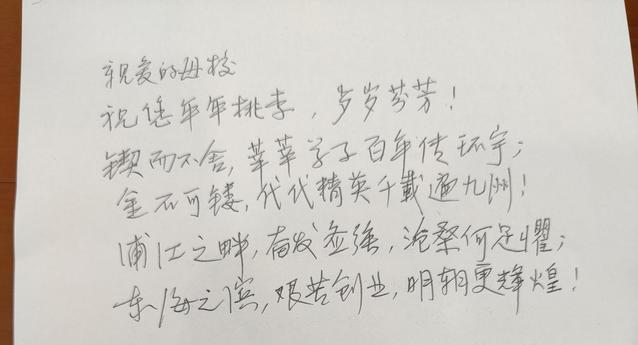 亲爱的母校
祝您年年桃李，岁岁芬芳！
锲而不舍，莘莘学子百年传环宇；
金石可镂，代代精英千载遍九州！
浦江之畔，奋发图强，沧桑何足惧；
东海之滨，艰苦创业，明朝更辉煌！